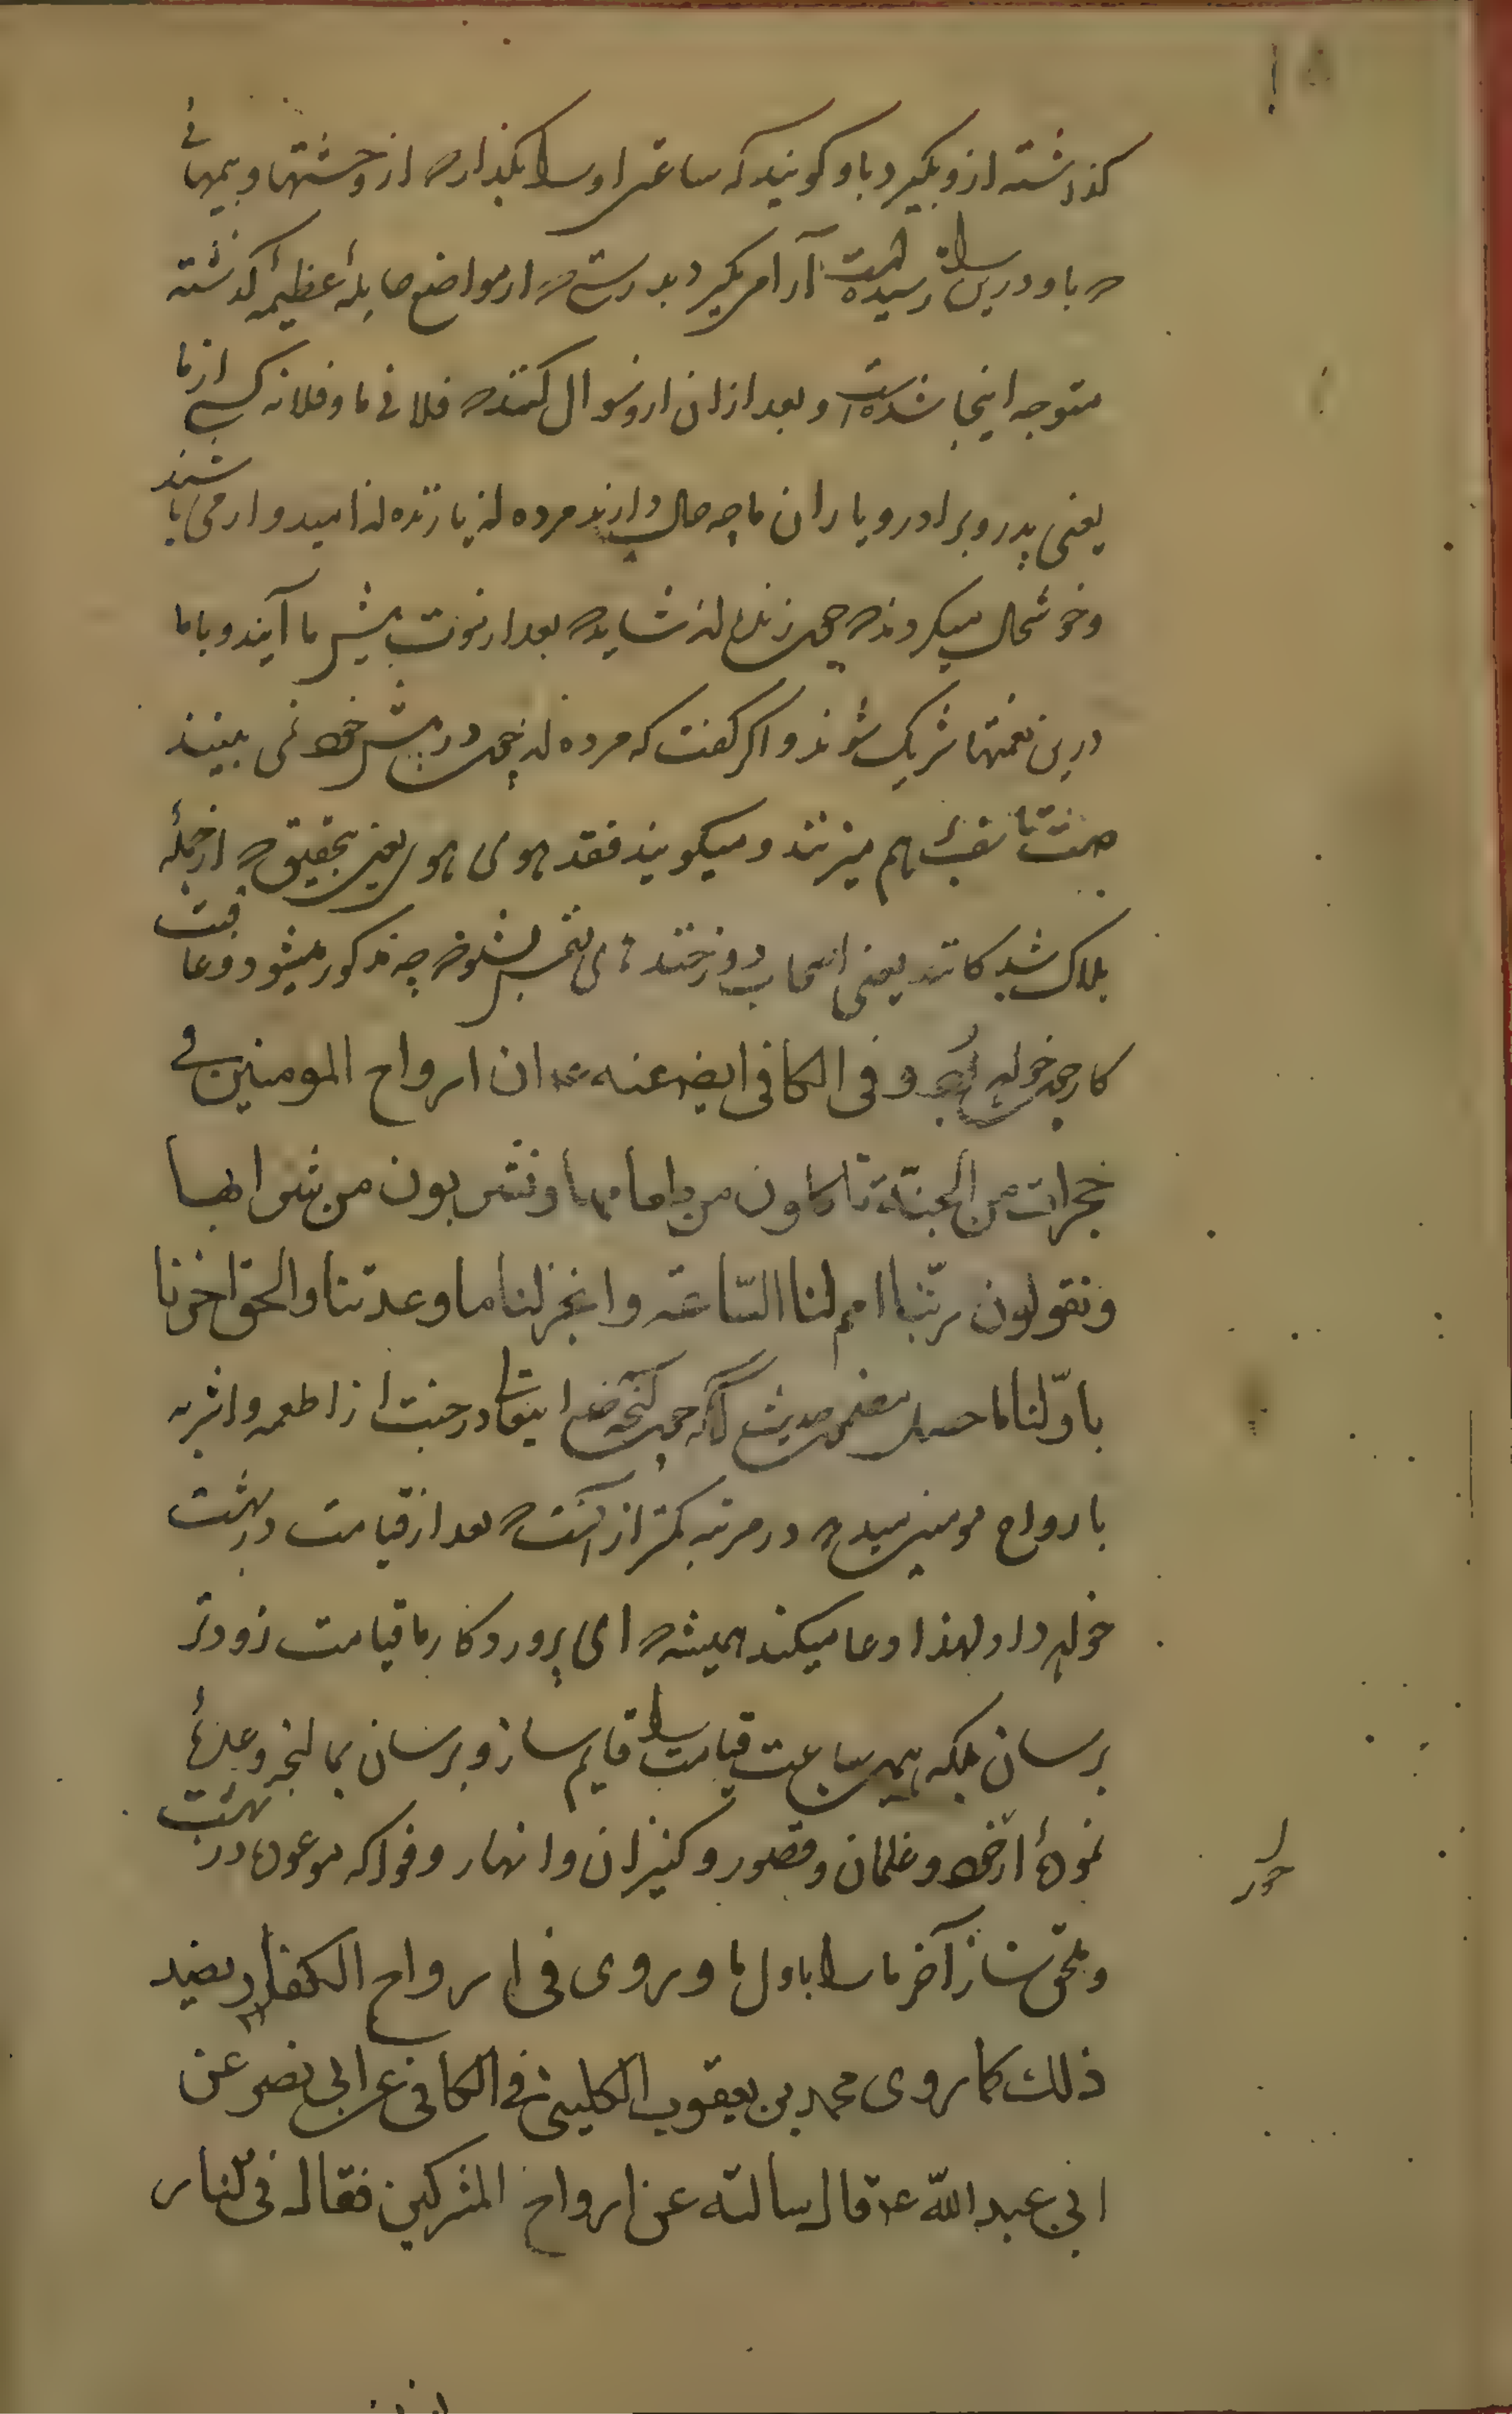 گذاشته ازو بگیرد باو گویند که ساعتی او را بگذار که از وحشتها و بیمهائی
که باو درین راه رسیده است آرام بگیرد بدرستی که از مواضع هایلهٔ عظیمه گذشته
متوجه اینجا شده است و بعد از ان ازو سوال کنند که فلانی ما و فلانه کس از ما
یعنی پدر و برادر و یاران ما چه حال دارند مرده اند یا زنده اند امیدوار می باشند
و خوشحال میگردند که چون زنده اند شاید که بعد از فوت پیش ما آیند و باما
درین نعمتها شریک شوند و اگر گفت که مرده اند چون در پیش خود نمی بینند
تاسف بهم میزنند و میگویند فقد هوی هوی یعنی بتحقیق که از جمله
هلاک شدگانند یعنی اصحاب دوزخند چه مذکور میشود و عاقبت
کار چه خواهد بود و فی الکافی ایضا عنه ع ان ارواح المومنین فی
حجرات من الجنة تاکلون من طعامها و تشربون من شرابها
و تقولون ربّنا اقم لنا السّاعة و انجز لنا ما وعدتنا و الحق اخرنا
باوّلنا حاصل مضمون حدیث آنکه چون آنچه خدایتعالی در جنت از اطعمه و اشربه
بارواح مومنین میدهد در مرتبه کمتر از آنست که بعد از قیامت در بهشت
خواهد داد لهذا دعا میکند همیشه که ای پروردگار ما قیامت زودتر
برسان بلکه همین ساعت قیامت را قایم ساز و برسان بما آنچه وعدهٔ
نمودهٔ از حور و غلمان و قصور و کنیزان و انهار و فواکه موعود در بهشت
و ملحق ساز آخر ما را باول ما و روی فی ارواح الکفار بضد
ذلک کما روی محمد بن یعقوب الکلینی فی الکافی عن ابی بصیر عن
ابی عبد اللّه ع قال سالته عن ارواح المشرکین فقال فی النار
حور